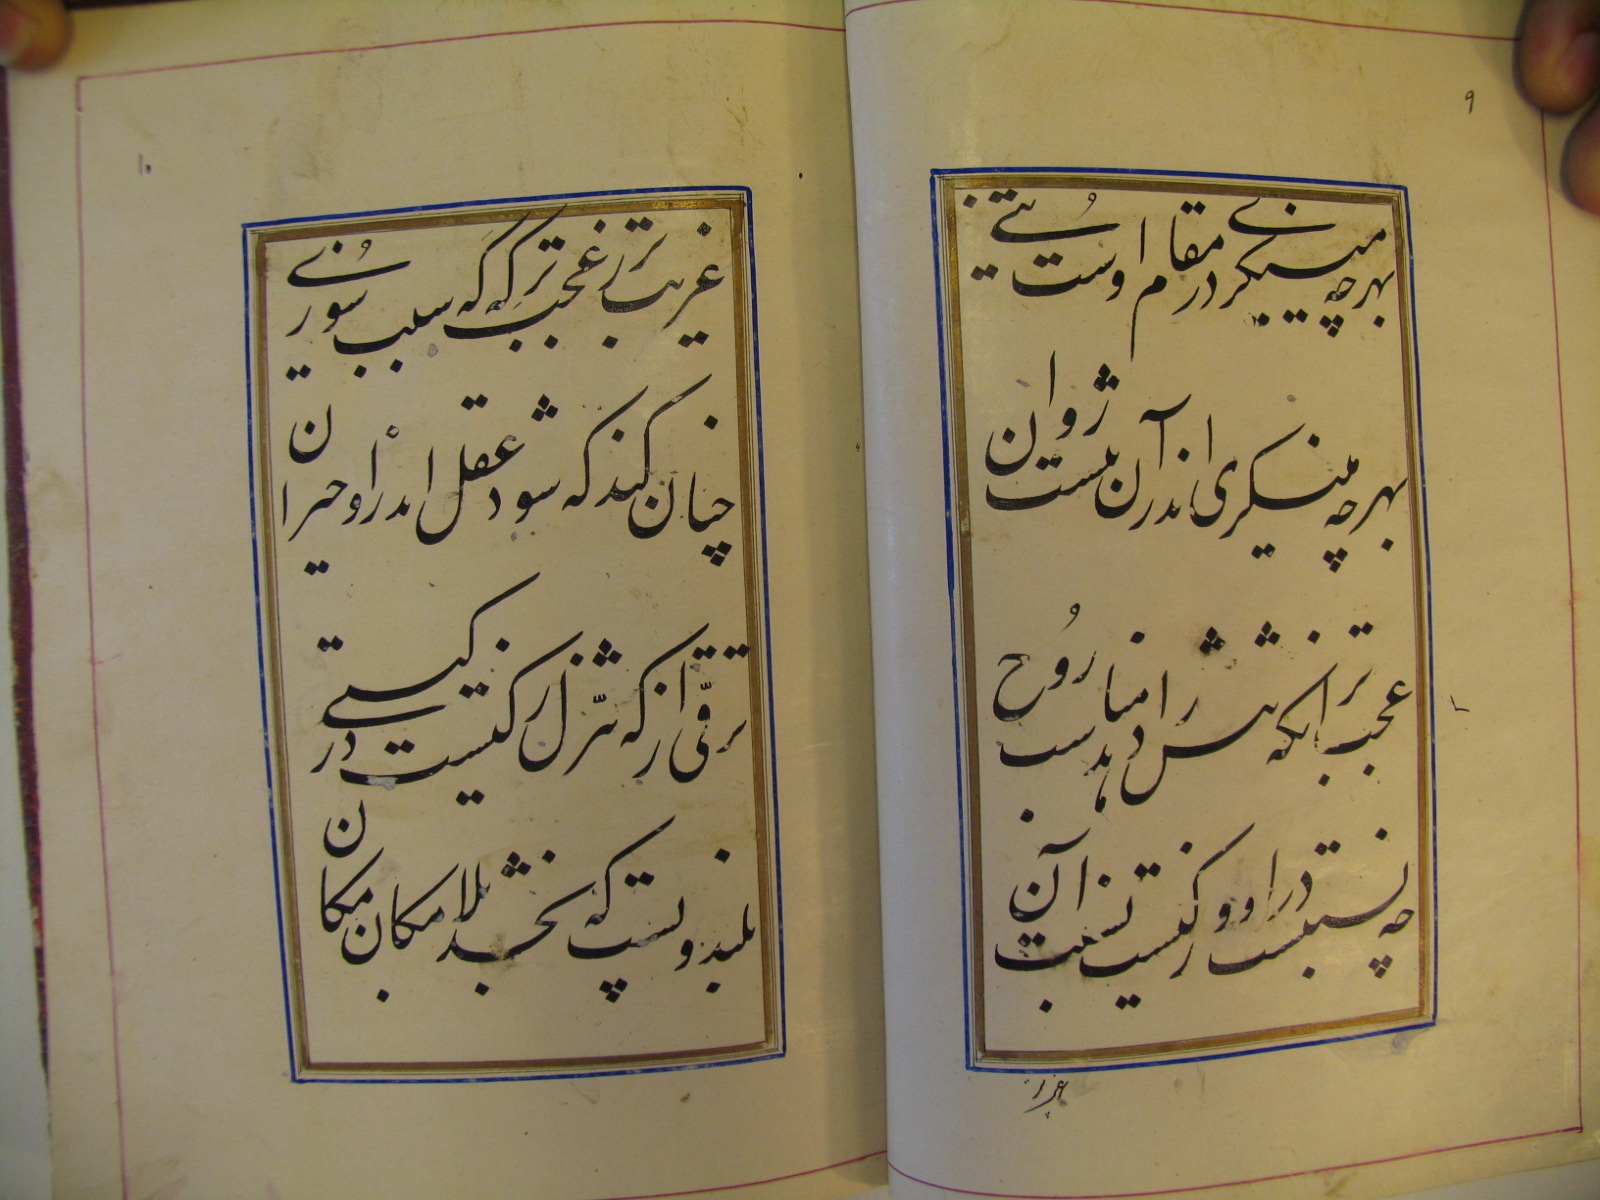 ۹
بهرچه مینگری در مقام اوست یقین
بهرچه مینگری اندر آن بست روان
عجب تر آنکه نشش را دهد مناسب روح
چه نسبتست در او و رکیست نسبت آن
غریب تر
۱۰
غریب تر ز عجب ترکه که سبب سوزی
چنان کند که شود عقل اندر او حیران
ترقی از که تنزل از کیست در کیتی
بلند و پست که بخشد بلامکان مکان